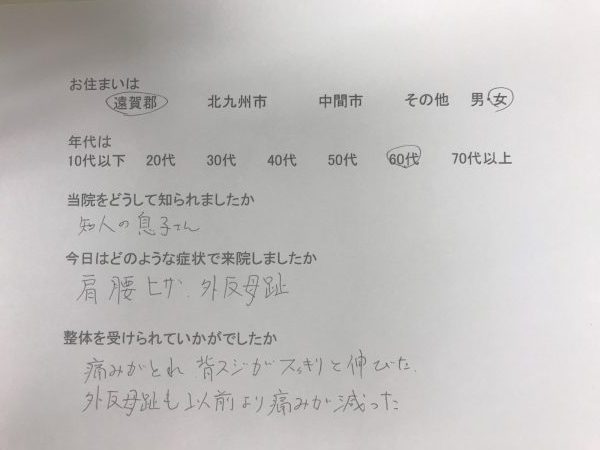 お住まいは
遠賀郡 北九州市 中間市 その他 男・女
年代は
10代以下 20代 30代 40代 50代 60代 70代以上
当院をどうして知られましたか
知人の息子さん
今日はどのような症状で来院しましたか
肩 腰 ヒザ. 外反母趾
整体を受けられていかがでしたか
痛みがとれ 背スジがスッキリと伸びた.
外反母趾も以前より痛みが減った